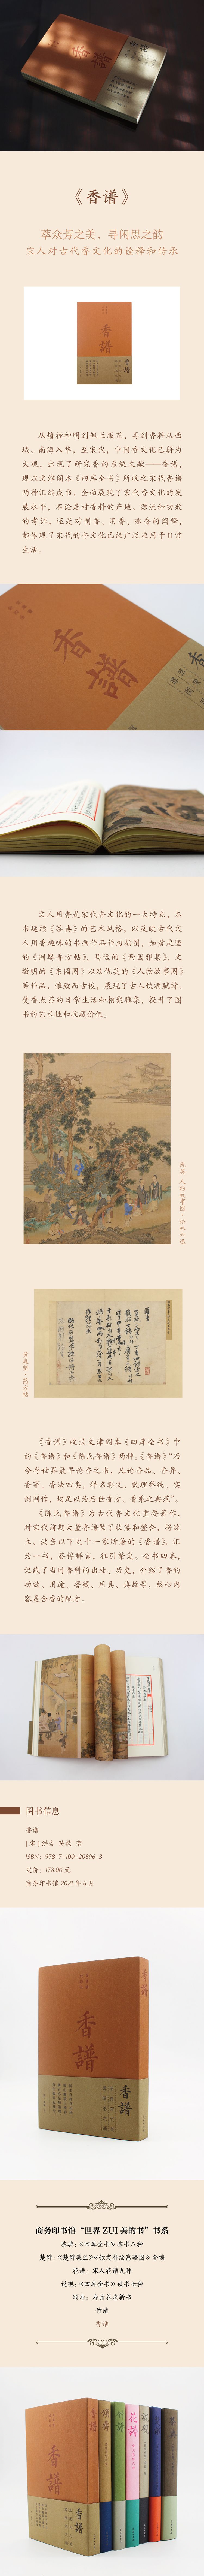 《香谱》
萃众芳之美，寻闲思之韵
宋人对古代香文化的诠释和传承
香譜
从燔禋神明到佩兰服芷，再到香料从西
域、南海入华，至宋代，中国香文化已蔚为
大观，出现了研究香的系统文献——香谱，
现以文津阁本《四库全书》所收之宋代香谱
两种汇编成书，全面展现了宋代香文化的发
展水平，不论是对香料的产地、源流和功效
的考证，还是对制香、用香、咏香的阐释，
都体现了宋代的香文化已经广泛应用于日常
生活。
香譜
文人用香是宋代香文化的一大特点，本
书延续《茶典》的艺术风格，以反映古代文
人用香趣味的书画作品作为插图，如黄庭坚
的《制婴香方帖》、马远的《西园雅集》、文
徵明的《东园图》以及仇英的《人物故事图》
等作品，雅致而古俊，展现了古人饮酒赋诗、
焚香点茶的日常生活和相聚雅集，提升了图
书的艺术性和收藏价值。
仇英 人物故事图·松林六逸
黄庭坚·药方帖
《香谱》收录文津阁本《四库全书》中
的《香谱》和《陈氏香谱》两种。《香谱》“乃
今存世界最早论香之书，凡论香品、香异、
香事、香法四类，释名彰义，数理举统、实
例制作，均足以为后世香方、香乘之典范”。
《陈氏香谱》为古代香文化重要著作，
对宋代前期大量香谱做了收集和整合，将沈
立、洪刍以下之十一家所著的《香谱》，汇
为一书，荟粹群言，征引繁复。全书四卷，
记载了当时香料的出处、历史，介绍了香的
功效、用途、窨藏、用具、典故等，核心内
容是合香的配方。
图书信息
香谱
[ 宋 ] 洪刍 陈敬 著
ISBN: 978-7-100-20896-3
定价: 178.00 元
商务印书馆 2021 年 6 月
香譜
香譜
商务印书馆“世界 ZUI 美的书”书系
茶典：《四库全书》茶书八种
楚辞：《楚辞集注》《钦定补绘离骚图》合编
花谱：宋人花谱九种
说砚：《四库全书》砚书七种
颂寿：寿亲养老新书
竹谱
香谱
香譜
香譜
頌壽
竹譜
花譜
說硯